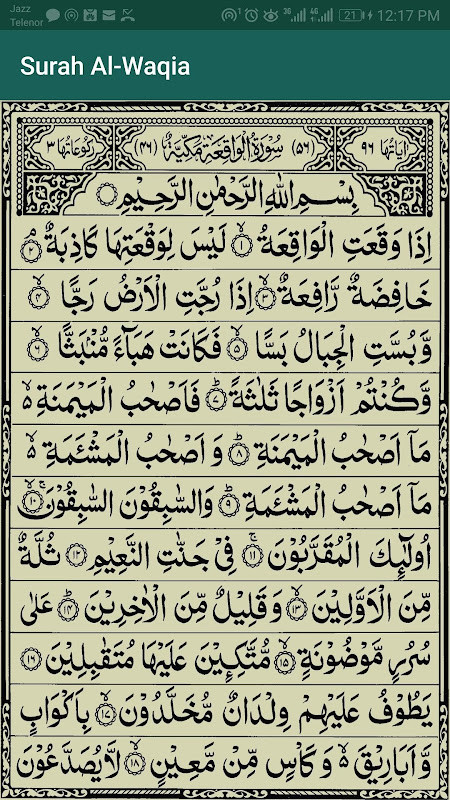 Jazz
Telenor
1
3G
4G
21
12:17 PM
Surah Al-Waqia
اٰيَاتُهَا ٩٦ (٥٦) سُوْرَةُ الْوَاقِعَةِ مَكِّيَّةٌ (٤٦) رُكُوْعَاتُهَا ٣
بِسْمِ اللّٰهِ الرَّحْمٰنِ الرَّحِيْمِ
اِذَا وَقَعَتِ الْوَاقِعَةُ ۙ‏﴿۱﴾ لَيْسَ لِوَقْعَتِهَا كَاذِبَةٌ ۘ‏﴿۲﴾
خَافِضَةٌ رَّافِعَةٌ ۙ‏﴿۳﴾ اِذَا رُجَّتِ الْاَرْضُ رَجًّا ۙ‏﴿۴﴾
وَّبُسَّتِ الْجِبَالُ بَسًّا ۙ‏﴿۵﴾ فَكَانَتْ هَبَآءً مُّنْۢبَثًّا ۙ‏﴿۶﴾
وَّكُنْتُمْ اَزْوَاجًا ثَلٰثَةً ؕ‏﴿۷﴾ فَاَصْحٰبُ الْمَيْمَنَةِ ۙ۬
مَاۤ اَصْحٰبُ الْمَيْمَنَةِ ؕ‏﴿۸﴾ وَ اَصْحٰبُ الْمَشْـَٔمَةِ ۙ۬
مَاۤ اَصْحٰبُ الْمَشْـَٔمَةِ ؕ‏﴿۹﴾ وَالسّٰبِقُوْنَ السّٰبِقُوْنَ ۚۙ‏﴿۱۰﴾
اُولٰٓئِكَ الْمُقَرَّبُوْنَ ۚ‏﴿۱۱﴾ فِيْ جَنّٰتِ النَّعِيْمِ ﴿۱۲﴾ ثُلَّةٌ
مِّنَ الْاَوَّلِيْنَ ۙ‏﴿۱۳﴾ وَقَلِيْلٌ مِّنَ الْاٰخِرِيْنَ ؕ‏﴿۱۴﴾ عَلٰى
سُرُرٍ مَّوْضُوْنَةٍ ۙ‏﴿۱۵﴾ مُّتَّكِـِٕيْنَ عَلَيْهَا مُتَقٰبِلِيْنَ ﴿۱۶﴾
يَطُوْفُ عَلَيْهِمْ وِلْدَانٌ مُّخَلَّدُوْنَ ۙ‏﴿۱۷﴾ بِاَكْوَابٍ
وَّاَبَارِيْقَ ۙ۬ وَكَاْسٍ مِّنْ مَّعِيْنٍ ۙ‏﴿۱۸﴾ لَّا يُصَدَّعُوْنَ